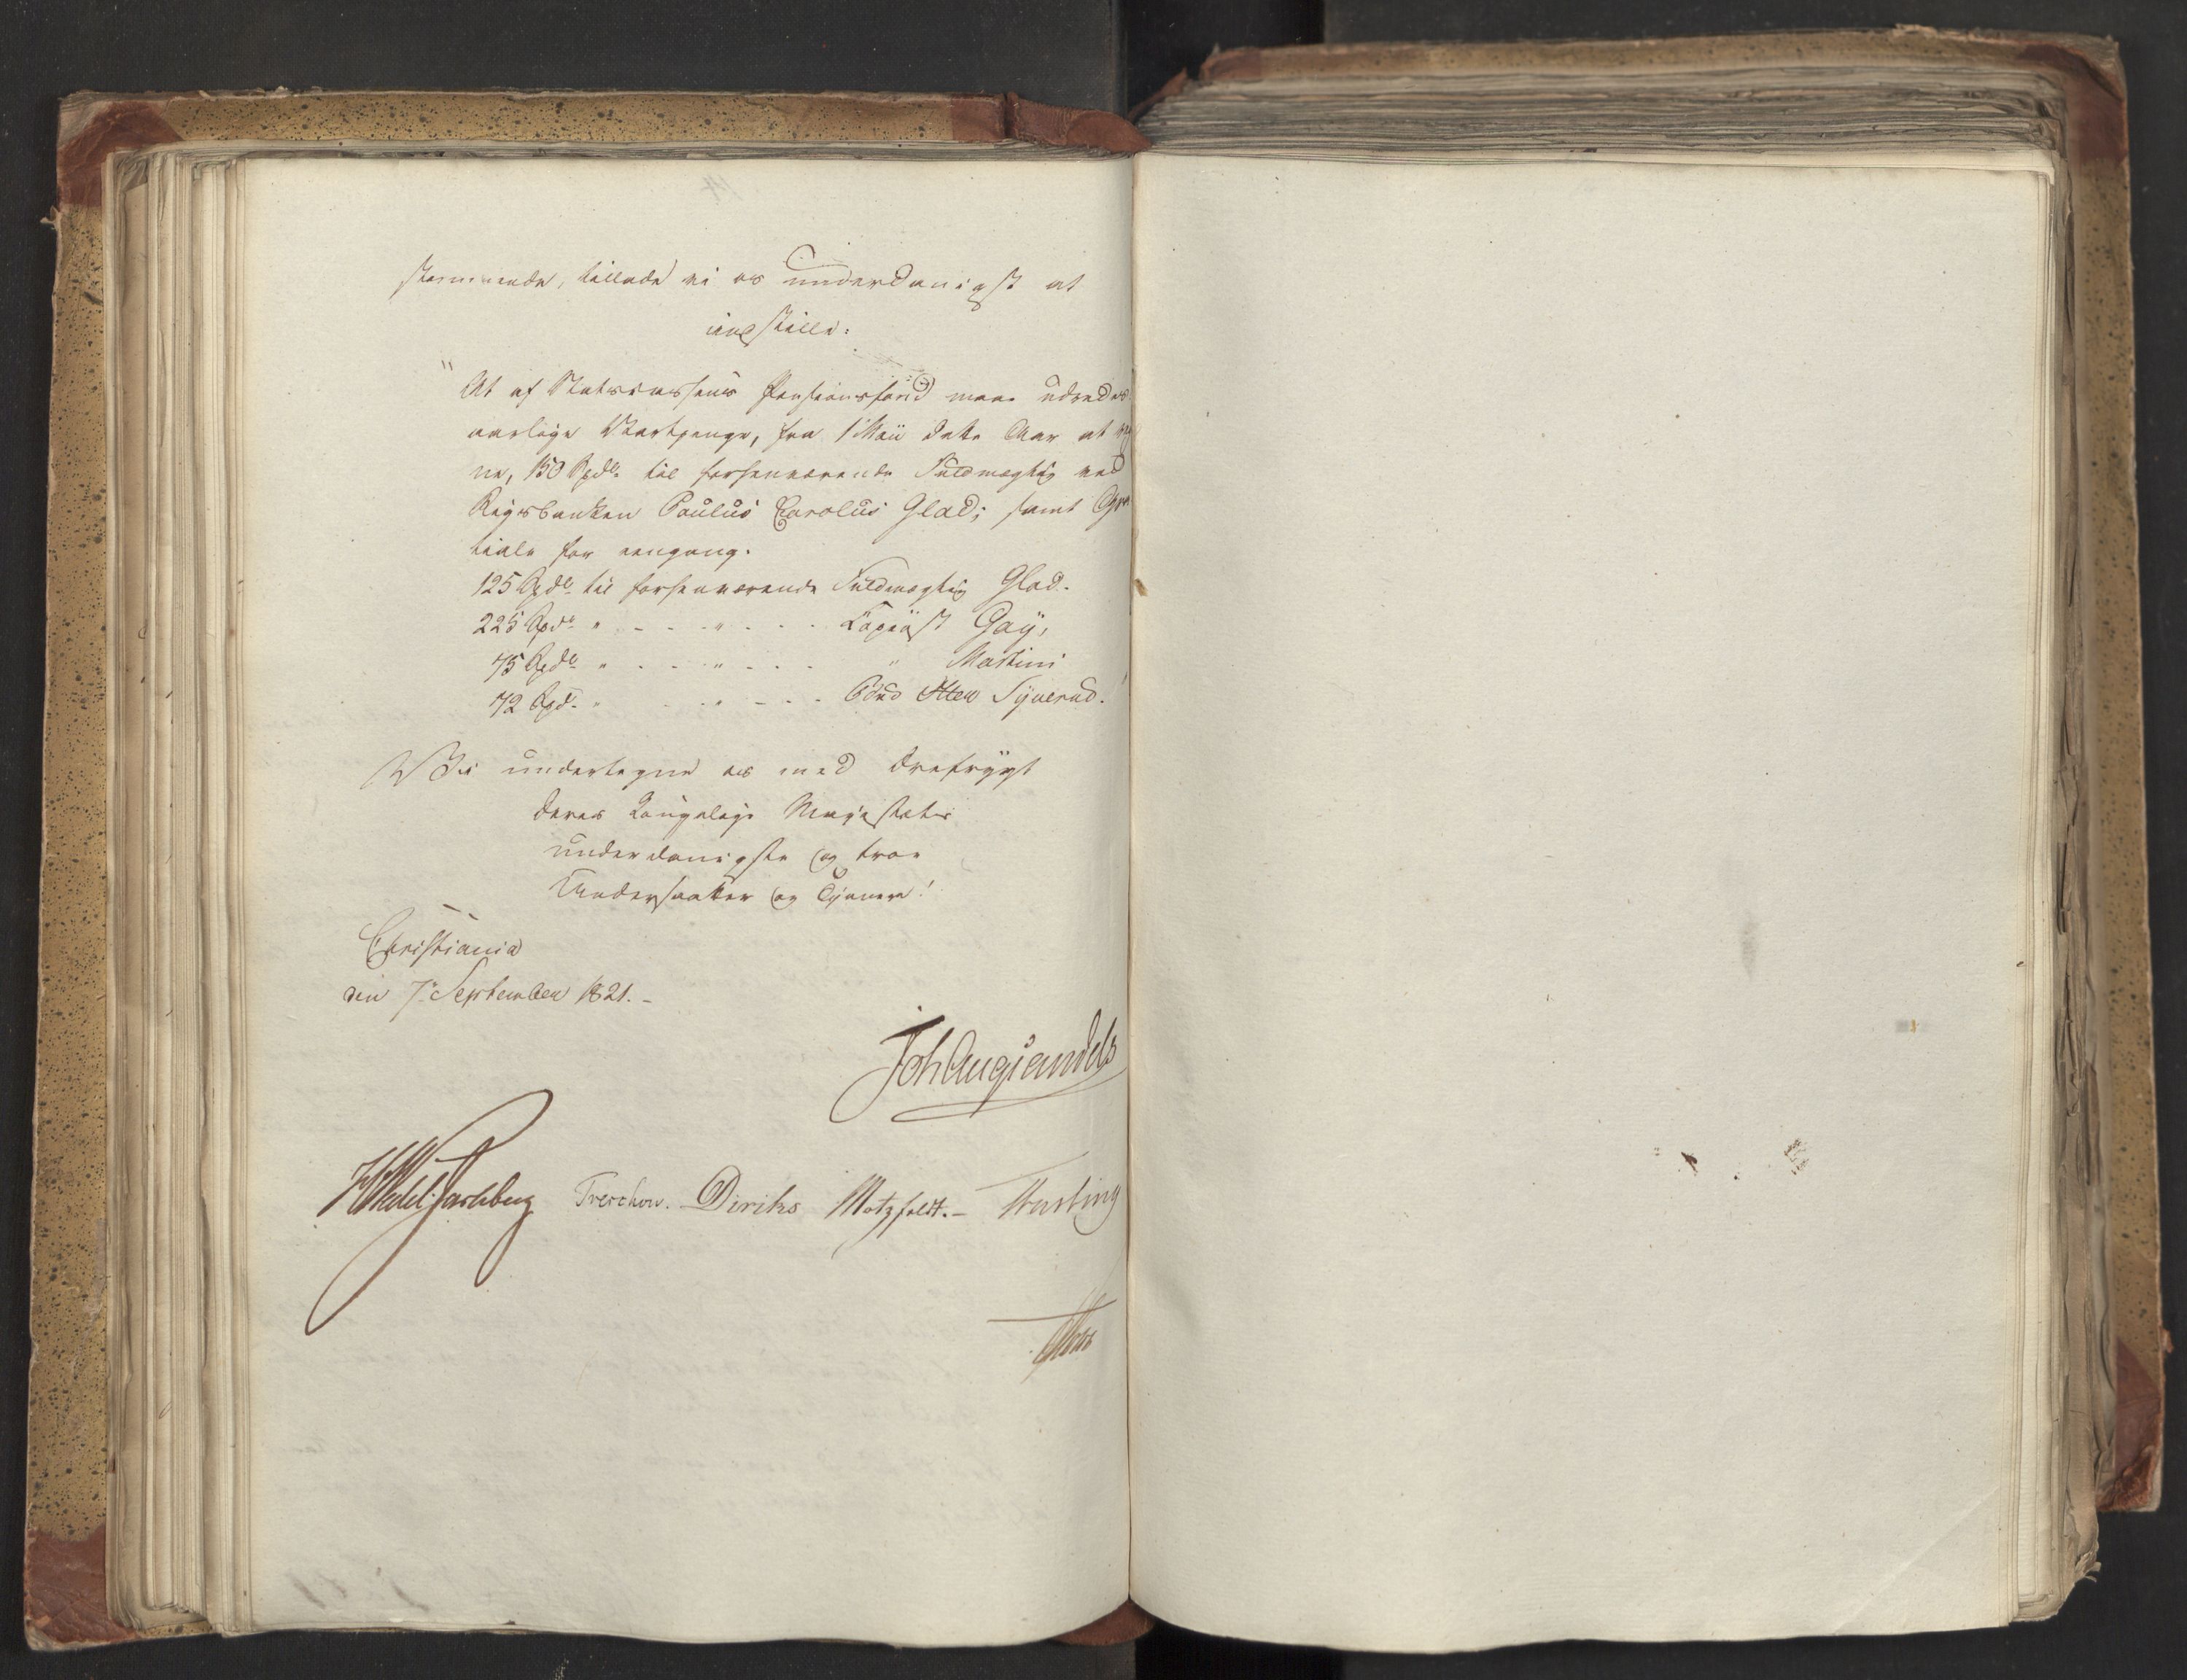 stemmende, tillade vi os underdanigst at
indstille:
"At af Statscassens Pensionsfond maae udredes
aarlige Vartpenge, fra 1 Maii dette Aar at reg
ne, 150 Spdlr. til forhenværende Fuldmægtig ved
Rigsbanken Paulus Carolus Glad; samt Gra
tiale for eengang.
125 Spdlr. til forhenværende Fuldmægtig Glad.
225 Spdr. " - - " - - - Copiist Gay,
75 Spdlr. " - - - " - - - " Martini
72 Spd. " - - " - - - Bud Syverud.
Vi undertegne os med Ærefrygt
Deres Kongelige Majestæts
underdanigste og troe
Undersaatter og Tjenere!
Christiania
den 7. September 1821. -
Joh Aug Sandels
HWedel Jarlsberg Treschow. Diriks Motzfeldt. - Fasting